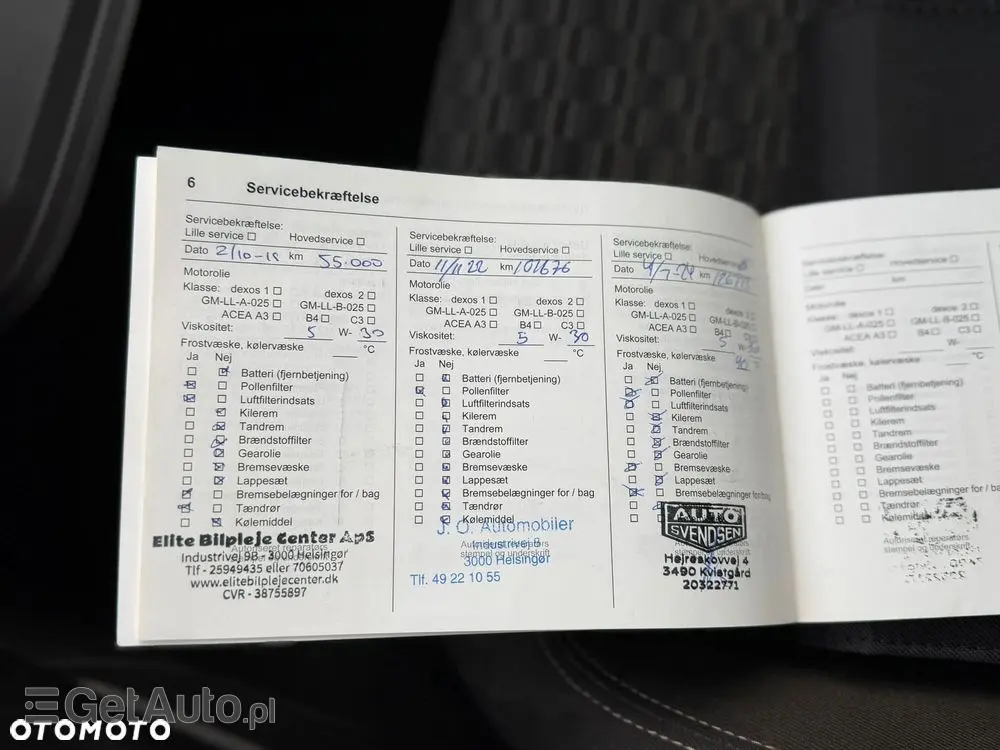 6 Servicebekræftelse
Servicebekræftelse:
Lille service Hovedservice
Dato 2/10-18 km 55.000
Motorolie
Klasse: dexos 1 dexos 2
GM-LL-A-025 GM-LL-B-025
ACEA A3 B4 C3
Viskositet: 5 W- 30
Frostvæske, kølervæske °C
Ja Nej
Batteri (fjernbetjening)
Pollenfilter
Luftfilterindsats
Kilerem
Tandrem
Brændstoffilter
Gearolie
Bremsevæske
Lappesæt
Bremsebelægninger for / bag
Tændrør
Kølemiddel
Elite Bilpleje Center ApS
Autoriseret reparatørs
Industrivej 9B - 3000 Helsingør
Tlf - 25949435 eller 70605037
www.elitebilplejecenter.dk
CVR - 38755897
Servicebekræftelse:
Lille service Hovedservice
Dato 11/11 22 km 101676
Motorolie
Klasse: dexos 1 dexos 2
GM-LL-A-025 GM-LL-B-025
ACEA A3 B4 C3
Viskositet: 5 W- 30
Frostvæske, kølervæske °C
Ja Nej
Batteri (fjernbetjening)
Pollenfilter
Luftfilterindsats
Kilerem
Tandrem
Brændstoffilter
Gearolie
Bremsevæske
Lappesæt
Bremsebelægninger for / bag
Tændrør
Kølemiddel
J. O. Automobiler
Autoriseret reparatørs
Industrivej 9
stempel og underskrift
3000 Helsingør
Tlf. 49 22 10 55
Servicebekræftelse:
Lille service Hovedservice
Dato km
Motorolie
Klasse: dexos 1 dexos 2
GM-LL-A-025 GM-LL-B-025
ACEA A3 B4 C3
Viskositet: 5 W- 30
Frostvæske, kølervæske °C
Ja Nej
Batteri (fjernbetjening)
Pollenfilter
Luftfilterindsats
Kilerem
Tandrem
Brændstoffilter
Gearolie
Bremsevæske
Lappesæt
Bremsebelægninger for / bag
AUTO
SVENDSEN
Hejreskovvej 4
3490 Kvistgård
20322771
Servicebekræftelse:
Lille service Hovedservice
Dato km
Motorolie
Klasse: dexos 1 dexos 2
GM-LL-A-025 GM-LL-B-025
ACEA A3 B4 C3
Viskositet: W-
Frostvæske, kølervæske °C
Ja Nej
Batteri (fjernbetjening)
Pollenfilter
Luftfilterindsats
Kilerem
Tandrem
Brændstoffilter
Gearolie
Bremsevæske
Lappesæt
Bremsebelægninger for
Tændrør
Kølemiddel
GetAuto.pl
OTOMOTO